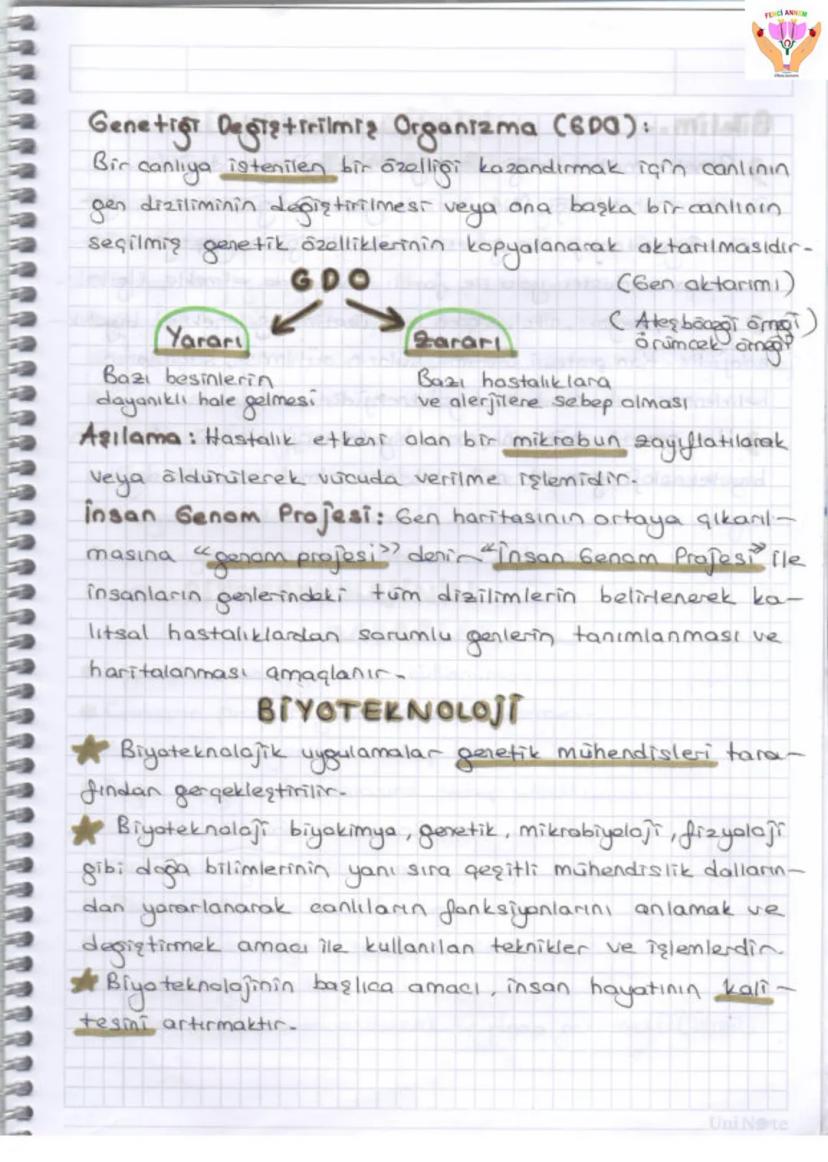 FENCİ ANNEM
Genetiği Değiştirilmiş Organizma (GDO):
Bir canlıya istenilen bir özelliği kazandırmak için canlının
gen diziliminin değiştirilmesi veya ona başka bir canlının
seçilmiş genetik özelliklerinin kopyalanarak aktarılmasıdır.
GDO
(Gen aktarımı)
(Ateşböceği örneği)
örümcek örneği
Yararı
Zararı
Bazı besinlerin
dayanıklı hale gelmesi
Bazı hastalıklara
ve alerjilere sebep olması
Aşılama: Hastalık etkeni olan bir mikrobun zayıflatılarak
veya öldürülerek vücuda verilme işlemidir.
İnsan Genom Projesi: Gen haritasının ortaya çıkarıl-
masına "genom projesi" denir. "İnsan Genom Projesi" ile
insanların genlerindeki tüm dizilimlerin belirlenerek ka-
lıtsal hastalıklardan sorumlu genlerin tanımlanması ve
haritalanması amaçlanır.
BİYOTEKNOLOJİ
Biyoteknolojik uygulamalar genetik mühendisleri tara-
fından gerçekleştirilir.
Biyoteknoloji biyokimya, genetik, mikrobiyoloji, fizyoloji
gibi doğa bilimlerinin yanı sıra çeşitli mühendislik dalların-
dan yararlanarak canlıların fonksiyonlarını anlamak ve
değiştirmek amacı ile kullanılan teknikler ve işlemlerdir.
Biyoteknolojinin başlıca amacı, insan hayatının kali-
tesini artırmaktır.
UniNote